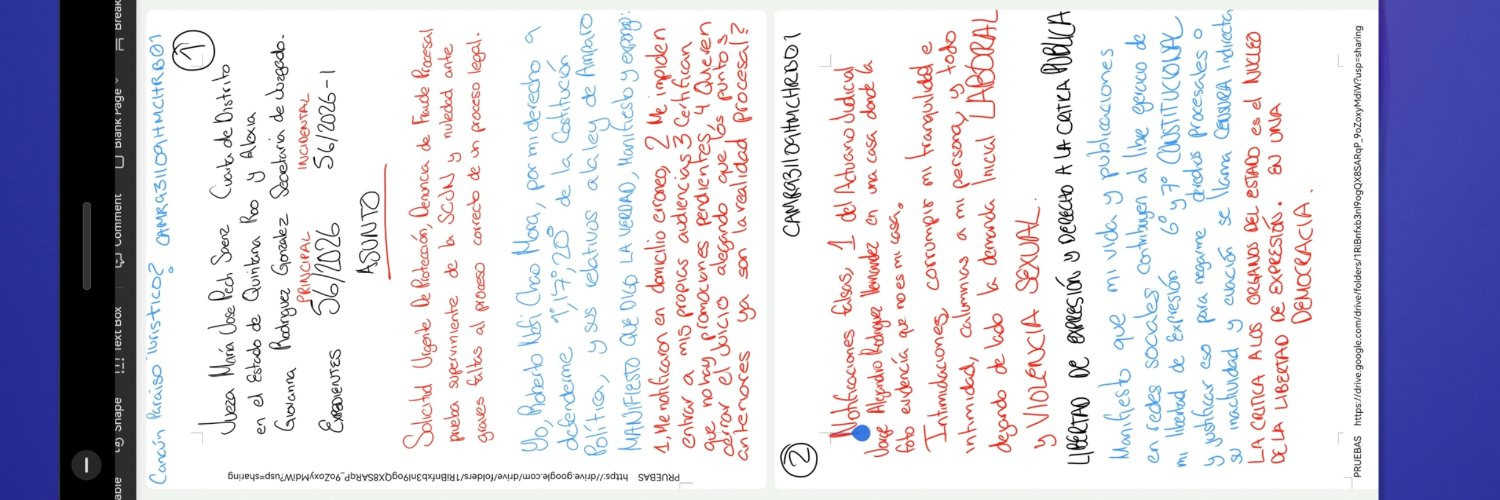 Break
Blank Page
Comment
Text Box
Shape
Cancún Paraíso Turístico? CAMR931109HMCHRB01
1
Jueza María José Pech Saenz Cuarta de Distrito
en el Estado de Quintana Roo y Aloxia
Giovanna Rodriguez Gonzalez Secretaria de Juzgado.
PRINCIPAL INCIDENTAL
EXPEDIENTES 56/2026 56/2026-1
ASUNTO
Solicitud Urgente De Protección, Denuncia de Fraude Procesal
prueba superviniente de la SCJN y nulidad ante
graves faltas al proceso correcto de un proceso legal.
Yo, Roberto Nefi Chao Mora, por mi derecho a
defenderme 1°, 17°, 20° de la Costitución
Política, y sus relativos a la ley de Amparo
MANIFIESTO QUE DIGO LA VERDAD, Manifiesto y expongo:
1, Me notificaron en domicilio erroneo, 2 Me impiden
entrar a mis propias audiencias 3 Certifican
que no hay promociones pendientes, 4 Queren
cerrar el juicio alegando que los puntos
anteriores ya son la realidad procesal?
PRUEBAS https://drive.google.com/drive/folders/1RiBnfxb3nI9ogQX8SARqP_9oZoxyMdiW?usp=sharing
CAMR931109HMCHRB01
2
Notificaciones falsas, 1 del Actuario Judicial
Jorge Alejandro Rodriguez Hernandez en una casa donde la
foto evidencía que no es mi casa.
Intimidaciones, corrumpir mi tranquilidad e
intimidad, calumnias a mi persona, y todo
dejando de lado la demanda Inicial LABORAL
y VIOLENCIA SEXUAL.
LIBERTAD DE EXPRESIÓN y DERECHO A LA CRITICA PÚBLICA
Manifiesto que mi vida y publicaciones
en redes sociales contribuyen al libre ejercicio de
mi libertad de Expresión 6° y 7° CONSTITUCIONAL
y justificar eso para negarme derechos Procesales o
su inactividad y evación se llama CENSURA Indirecta
LA CRITICA A LOS ORGANOS DEL ESTADO es el NUCLEO
DE LA LIBERTAD DE EXPRESIÓN. EN UNA
DEMOCRACIA.
PRUEBAS https://drive.google.com/drive/folders/1RiBnfxb3nI9ogQX8SARqP_9oZoxyMdiW?usp=sharing